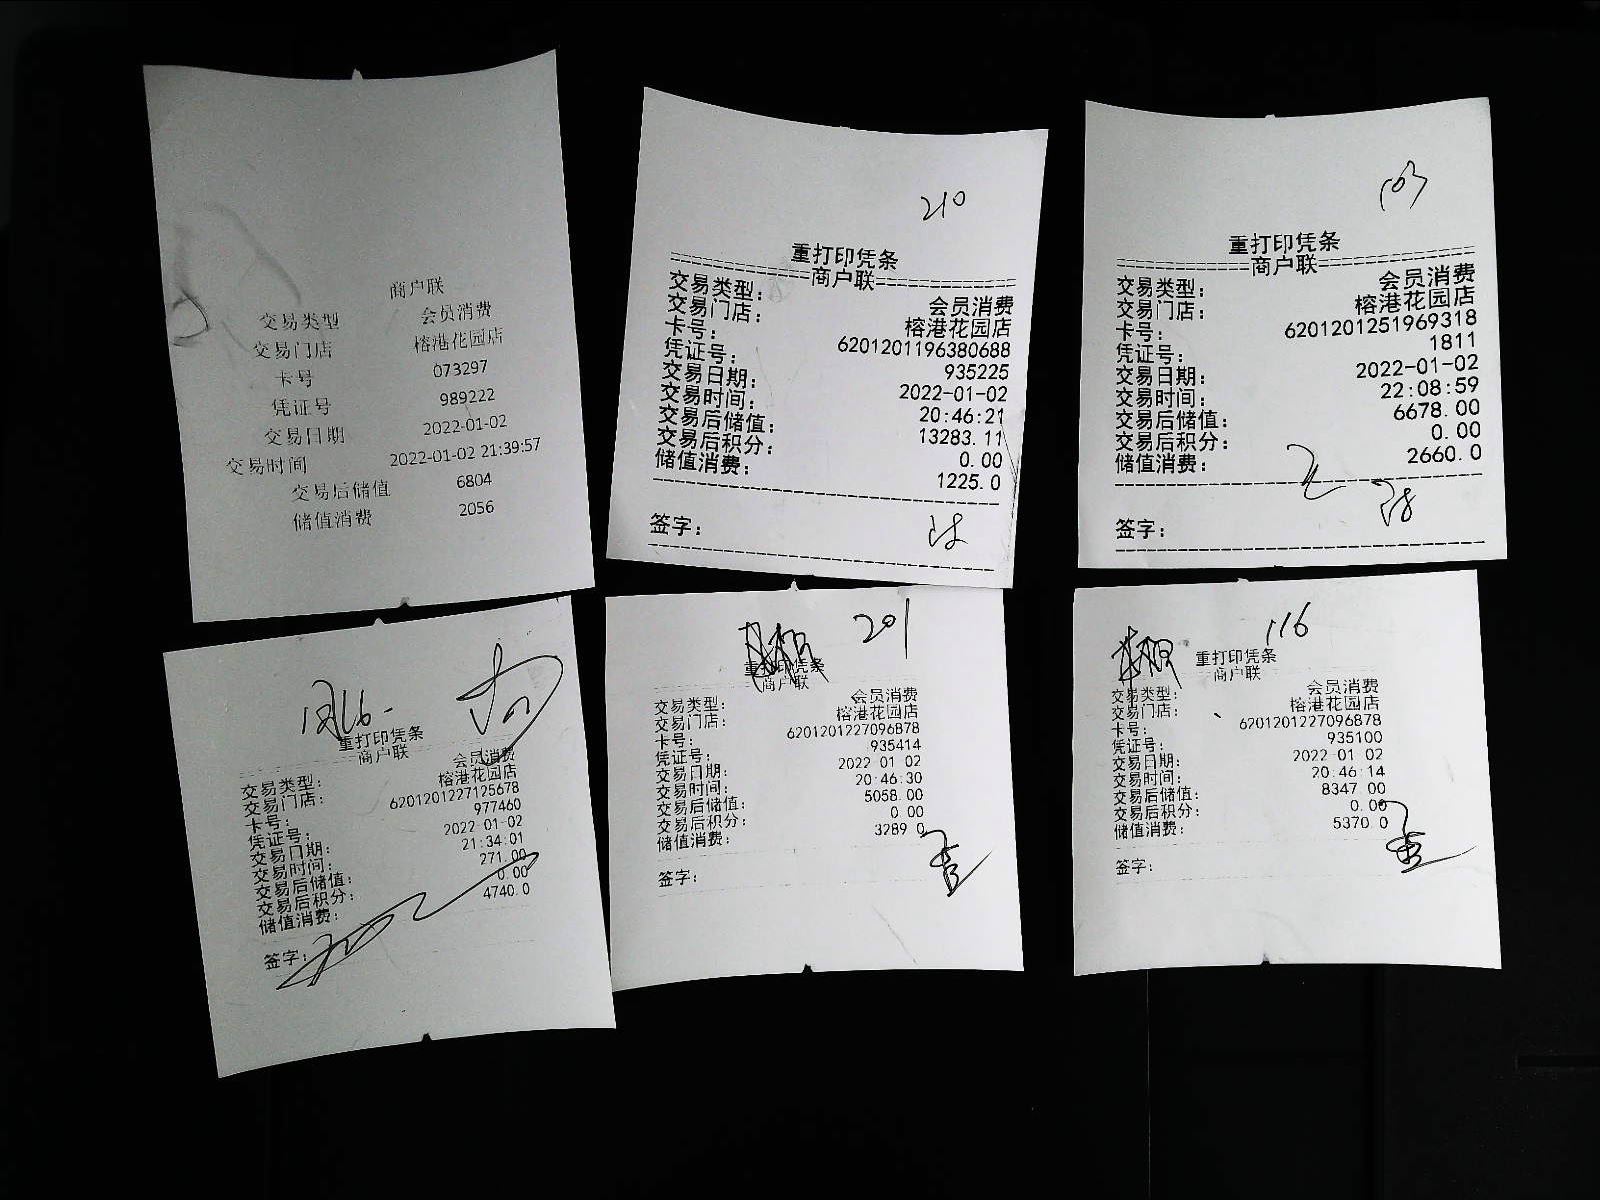 商户联
交易类型 会员消费
交易门店 榕港花园店
卡号 073297
凭证号 989222
交易日期 2022-01-02
交易时间 2022-01-02 21:39:57
交易后储值 6804
储值消费 2056
210
重打印凭条
商户联
交易类型: 会员消费
交易门店: 榕港花园店
卡号: 6201201196380688
凭证号: 935225
交易日期: 2022-01-02
交易时间: 20:46:21
交易后储值: 13283.11
交易后积分: 0.00
储值消费: 1225.0
签字:
103
重打印凭条
商户联
交易类型: 会员消费
交易门店: 榕港花园店
卡号: 6201201251969318
凭证号: 1811
交易日期: 2022-01-02
交易时间: 22:08:59
交易后储值: 6678.00
交易后积分: 0.00
储值消费: 2660.0
签字:
重打印凭条
商户联
交易类型: 会员消费
交易门店: 榕港花园店
卡号: 6201201227125678
凭证号: 977460
交易日期: 2022-01-02
交易时间: 21:34:01
交易后储值: 271.00
交易后积分: 0.00
储值消费: 4740.0
签字:
201
重打印凭条
商户联
交易类型: 会员消费
交易门店: 榕港花园店
卡号: 6201201227096878
凭证号: 935414
交易日期: 2022 01 02
交易时间: 20:46:30
交易后储值: 5058.00
交易后积分: 0.00
储值消费: 3289 0
签字:
116
重打印凭条
商户联
交易类型: 会员消费
交易门店: 榕港花园店
卡号: 6201201227096878
凭证号: 935100
交易日期: 2022 01 02
交易时间: 20:46:14
交易后储值: 8347.00
交易后积分: 0.00
储值消费: 5370.0
签字: